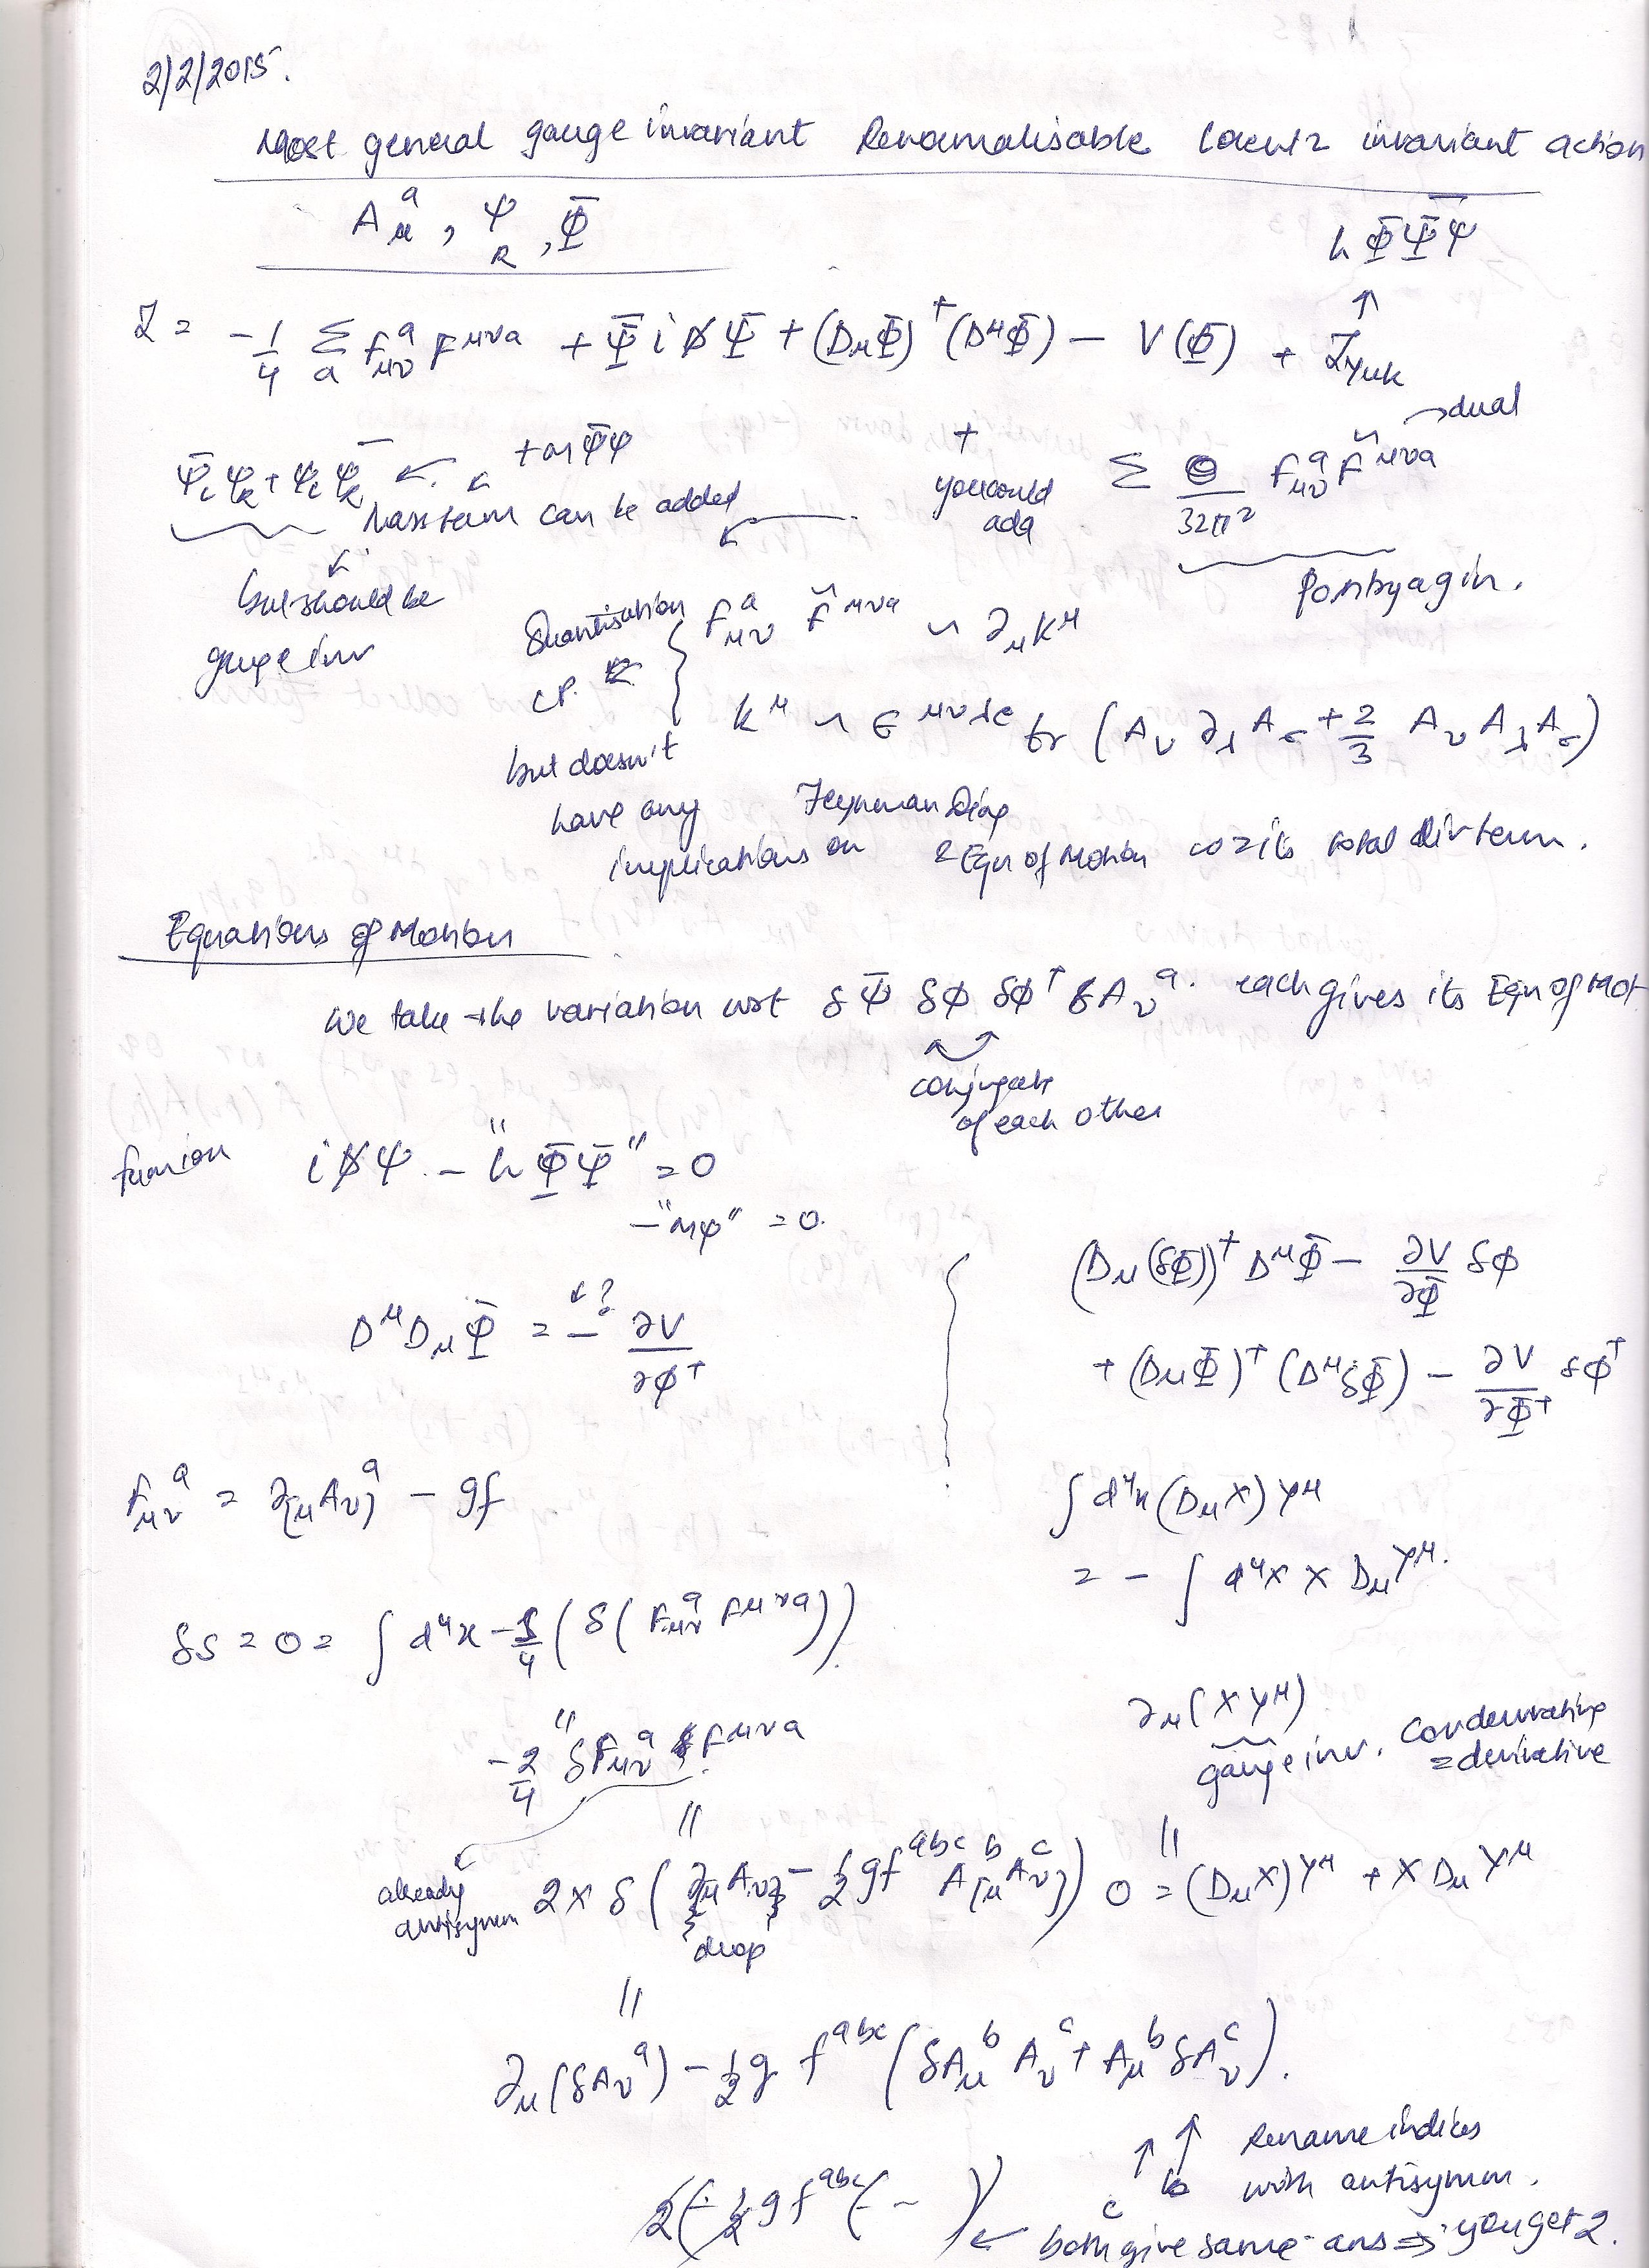 2/2/2015.
Most general gauge invariant Renormalisable Lorentz invariant action
A_μ^a , ψ_R , Φ
h Φ Ψ̄ Ψ
↑
L = -1/4 Σ_a F_μν^a F^μνa + Ψ̄ i D̸ Ψ + (D_μ Φ)^† (D^μ Φ) - V(Φ) + L_Yuk
+ m ψ̄ψ
Ψ̄_L ψ_R + ψ_L ψ̄_R ←
Mass term can be added
but should be
gauge inv
+
you could
add
Σ θ/32π² F_μν^a F̃^μνa → dual
Pontryagin.
Quantisation
CP.
{ F_μν^a F̃^μνa ~ ∂_μ K^μ
K^μ ~ ε^μνλσ tr (A_ν ∂_λ A_σ + 2/3 A_ν A_λ A_σ)
but doesn't
have any
implications on Feynman Diag
& Eqn of Motion coz its total div term.
Equations of Motion
We take the variation wrt δΨ̄ δφ δφ^† δA_ν^a. each gives its Eqn of Mot
conjugate
of each other
fermion i D̸ ψ - "h Φ Ψ" = 0
- "mψ" = 0.
D^μ D_μ Φ = - ∂V/∂φ^†
?
(D_μ (δΦ))^† D^μ Φ - ∂V/∂Φ δφ
+ (D_μ Φ)^† (D^μ δΦ) - ∂V/∂Φ^† δφ^†
F_μν^a = ∂_[μ A_ν]^a - gf
∫ d⁴x (D_μ X) Y^μ
= - ∫ d⁴x X D_μ Y^μ.
δS = 0 = ∫ d⁴x - 1/4 ( δ ( F_μν^a F^μνa ) )
"
- 2/4 δF_μν^a F^μνa
∂_μ (X Y^μ)
gauge inv. Cov derivative
= derivative
already
antisymm
"
2 × δ ( ∂_[μ A_ν] - 1/2 g f^abc A_[μ^b A_ν]^c )
drop
"
0 = (D_μ X) Y^μ + X D_μ Y^μ
"
∂_μ (δA_ν^a) - 1/2 g f^abc ( δA_μ^b A_ν^c + A_μ^b δA_ν^c ).
↑ ↑
c b
Rename indices
with antisymm.
2 ( - 1/2 g f^abc ( - ) ) ← both give same ans ⇒ you get 2.